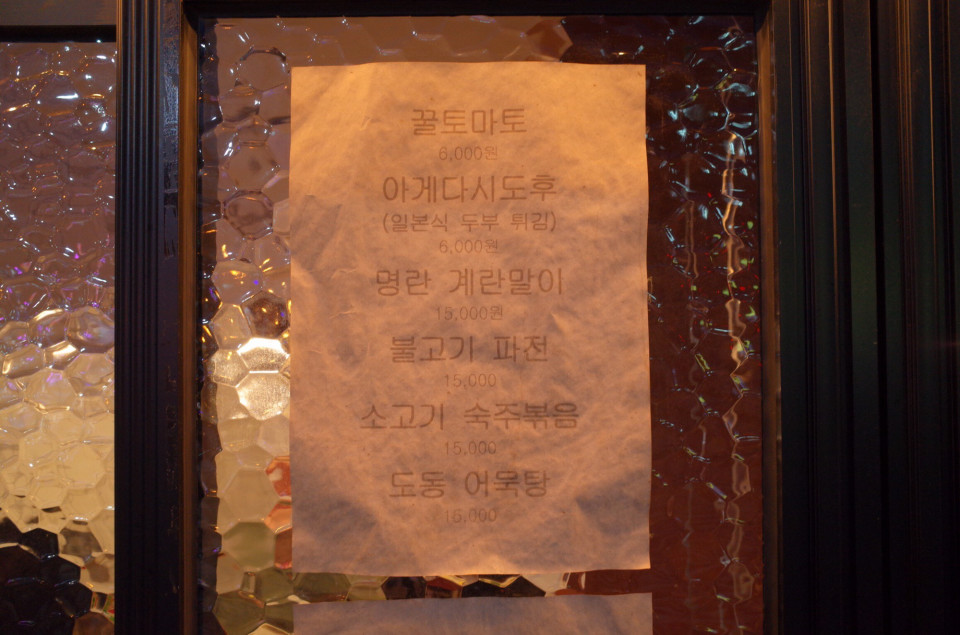 꿀토마토
6,000원
아게다시도후
(일본식 두부 튀김)
6,000원
명란 계란말이
15,000원
불고기 파전
15,000
소고기 숙주볶음
15,000
도동 어묵탕
16,000